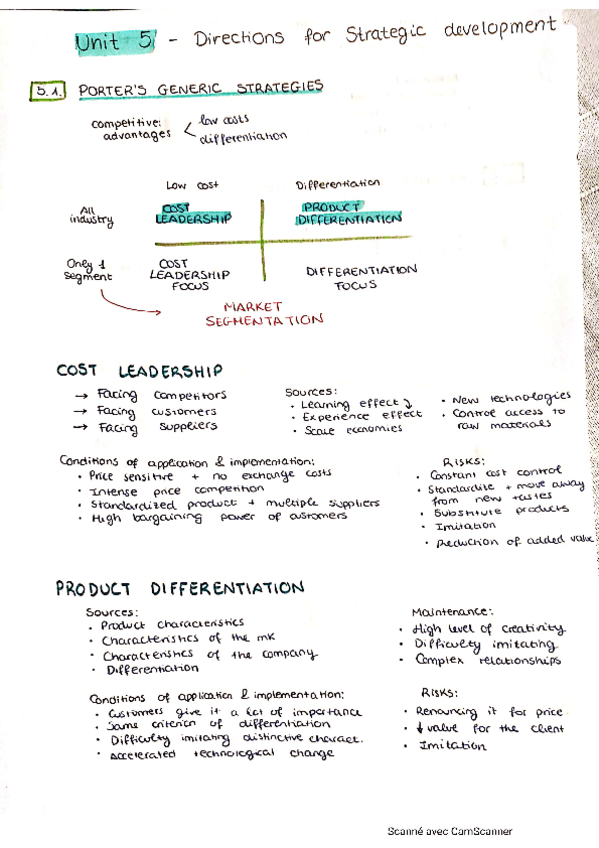 Unit 5 - Directions for Strategic development
5.1. PORTER'S GENERIC STRATEGIES
competitive: advantages
low costs
differentiation
Low cost
Differentiation
All industry
COST LEADERSHIP
PRODUCT DIFFERENTIATION
Only 1 segment
COST LEADERSHIP FOCUS
DIFFERENTIATION FOCUS
MARKET
SEGMENTATION
COST LEADERSHIP
→ Facing competitors
→ Facing customers
→ Facing suppliers
Sources:
• Learning effect
• Experience effect
• Scale economies
• New technologies
• Control access to
raw materials
Conditions of application & implementation:
• Price sensitive + no exchange costs
• Intense price competition
• Standardized product + multiple suppliers
• High bargaining power of customers
Risks:
• Constant cost control
• Standardize + move away
from new tastes
• Substitute products
• Imitation
• Reduction of added value
PRODUCT DIFFERENTIATION
Sources:
• Product characteristics
• Characteristics of the mk
• Characteristics of the company
• Differentiation
Maintenance:
• High level of creativity
• Difficulty imitating
• Complex relationships
Conditions of application & implementation:
• Customers give it a lot of importance
• Same criterion of differentiation
• Difficulty imitating distinctive charact.
• Accelerated technological change
Risks:
• Renouncing it for price
• ↓ value for the client
• Imitation
Scanné avec CamScanner